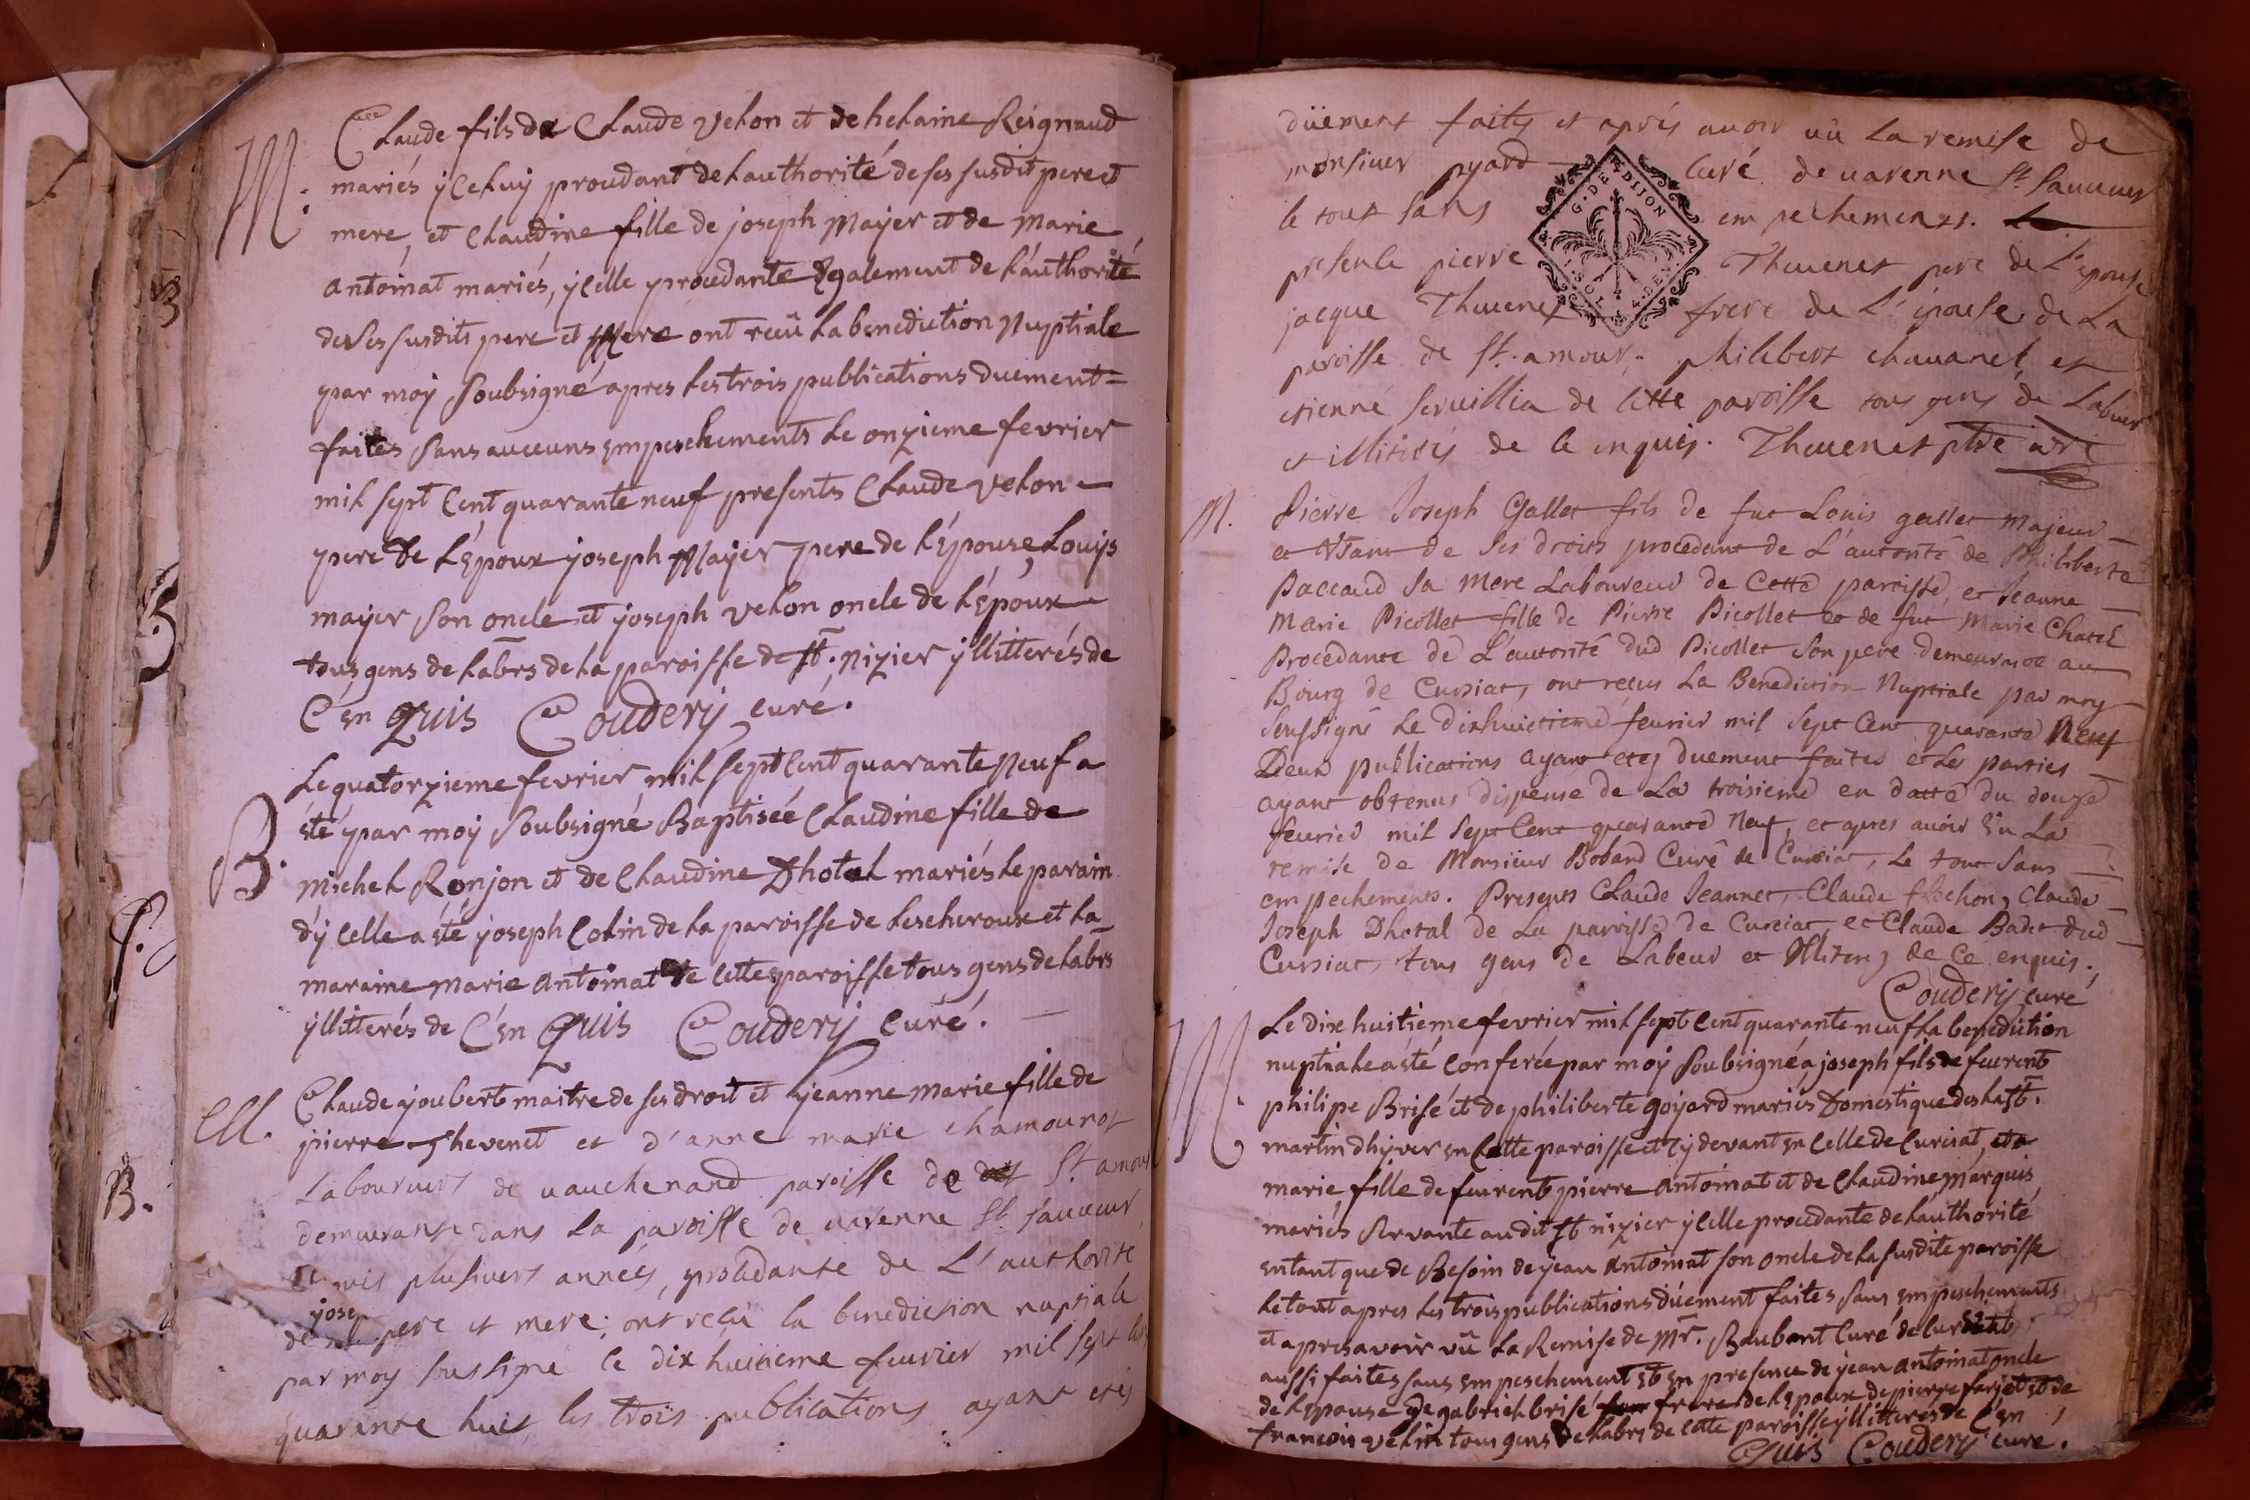 M.
Claude fils de Claude velon et de helaine Reignaud
mariés yceluy procedant de lauthorité de ses susdit pere et
mere, et Claudine fille de joseph Mayer et de Marie
antoinat mariés, ycelle procedante Egalement de lauthorité
de ses susdits pere et Mere ont reçû la benediction Nuptiale
par moy Soubsigné, apres les trois publications duement=
faites Sans aucuns Empeschements le onzieme fevrier
mil sept Cent quarante neuf presents Claude velon
pere de lÉpoux joseph Mayer pere de lÉpouse, Louys
mayer son oncle et joseph velon oncle de lÉpoux
tous gens de labrs de la paroisse de st. nizier yllitterés de
C'en Quis Coudery curé.
B.
Le quatorzieme fevrier mil sept Cent quarante neuf a
esté par moy Soubsigné Baptisée Claudine fille de
Michel Ronjon et de Claudine Dhotal mariés le parain
d'ycelle a esté joseph Colin de la paroisse de Lescheroux et la
maraine marie antoinat de Cette paroisse tous gens de labrs
yllitterés de C'en Quis Coudery Curé.
M.
Claude joubert maitre de ses droit et jeanne marie fille de
pierre Thevenet et d'anne marie chamounot
Laboureurs de vauchenand paroisse de St. amour
demeurante dans la paroisse de varenne St. sauveur
plusieurs années, procedante de L'authorité
de pere et mere; ont reçü la benediction nuptiale
par moy soussigné le dix huitieme fevrier mil sept cent
quarante huit, les trois publications ayant etés
düement faites et aprés avoir vü la remise de
monsieur pyard Curé de varenne St. sauveur
le tout sans empechements.
G. DE DIJON
presents pierre Thevenet pere de L'epouse
jacque Thevenet frere de L'épouse de la
paroisse de St. amour. philibert chavanel, et
etienne servillia de Cette paroisse tous gens de Labeur
et illiterés de ce enquis. Thevenet ptre
M.
Pierre Joseph Gallet fils de fut Louis gallet Majeur
et Usant de ses droits procedant de L'autorité de Philiberte
Paccaud sa Mere Laboureur de Cette paroisse, et Jeanne
Marie Picollet fille de Pierre Picollet et de fut Marie Chatel
Procedante de L'autorité dud Picollet son pere demeurant au
Bourg de Cursiat, ont reçus la Benediction Nuptiale par moy
Soussigné le dixhuictieme fevrier mil sept Cent quarante Neuf
Deux publications ayant etez duement faites et Les parties
ayant obtenus dispense de La troisieme en datte du douze
fevrier mil sept Cent quarante Neuf, et apres avoir Eu La
remise de Monsieur Bobard Curé de Cursiat, le tout sans
empechements. Presents Claude Jeannet, Claude flochon, Claude
Joseph Dhotal de La paroisse de Cursiat, et Claude Badet dud
Cursiat, tous gens de Labeur et Illiterez de Ce enquis.
Coudery curé
M.
Le dix huitieme fevrier mil sept Cent quarante neuf la benediction
nuptiale a esté Conferée par moy Soubsigné a joseph fils de feurent
philipe Brisé et de philiberte goyard mariés Domestique des la st.
martin dhyver en Cette paroisse et cy devant en Celle de Curciat, et a
marie fille de feurent pierre antoinat et de Claudine Marquis
mariés Servante au dit st nizier ycelle procedante de lauthorité
entant que de Besoin de jean antoinat son oncle de la susdite paroisse
le tout apres les trois publications düement faites sans Empeschements
et apres avoir vû la Remise de Mr. Baubant Curé de
aussi faites sans Empeschement Et En presence de jean antoinat oncle
de lepouse de gabriel brisé frere de lEpoux de pierre farjet et de
francois velin tous gens de labrs de Cette paroisse yllitterés de C'en
Quis Coudery curé.
B
B.